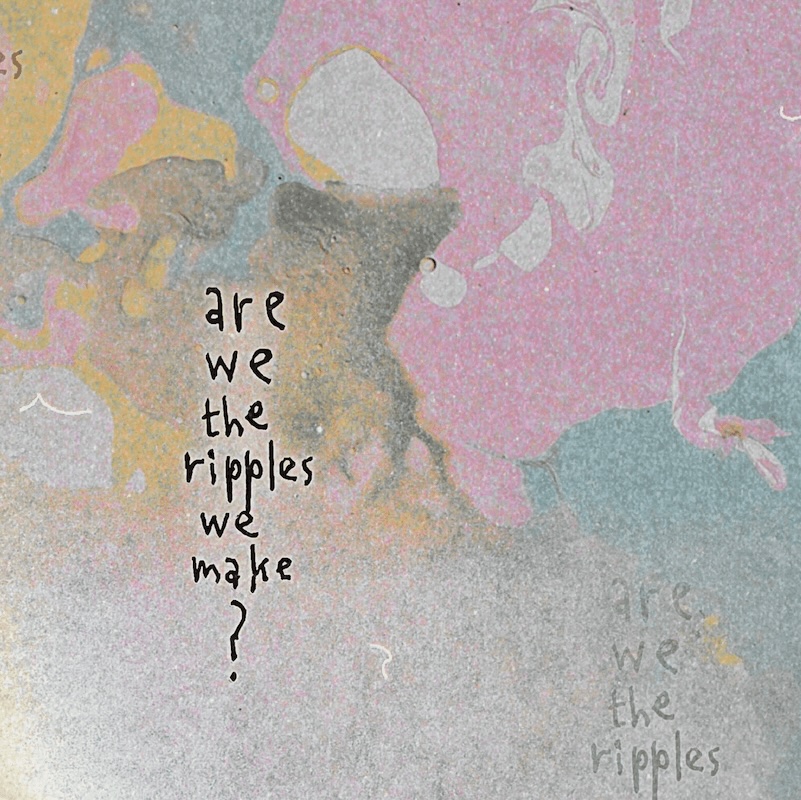 es
are
we
the
ripples
we
make
?
are
we
the
ripples